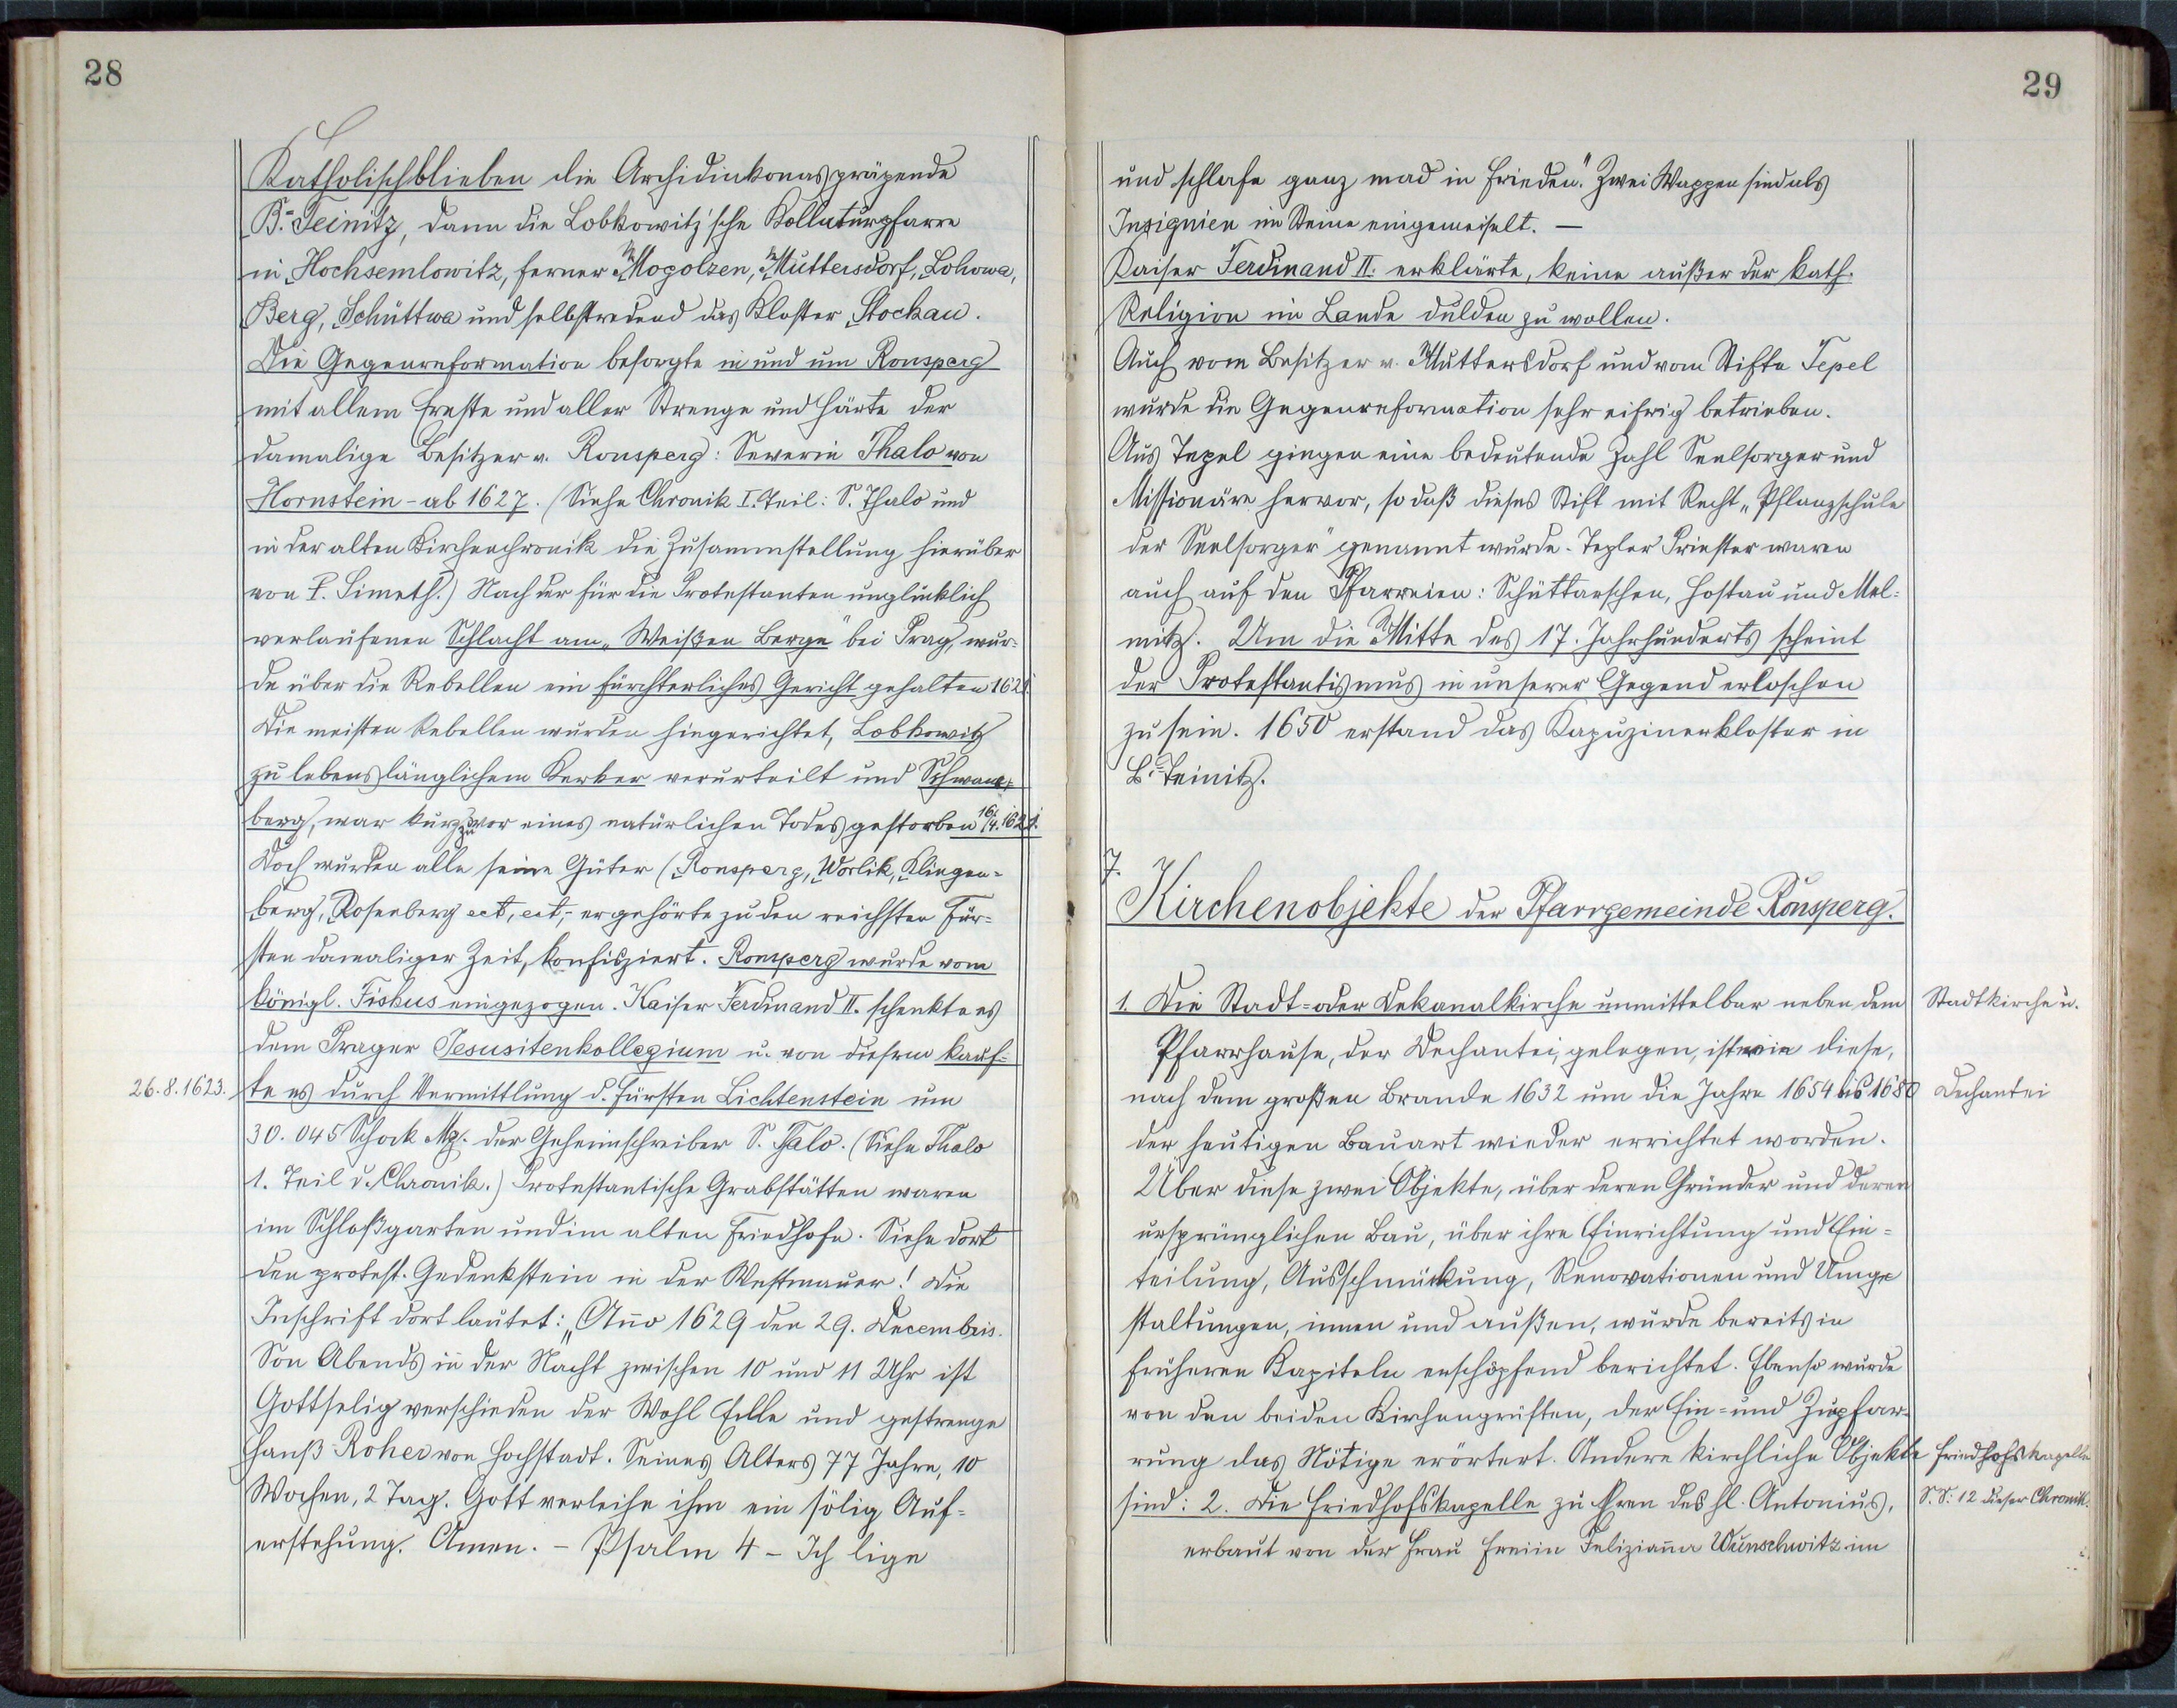 28
Katholischblieben die Archidiakonaspräpende
B.-Teinitz, dann die Lobkowitz'sche Kollaturpfarre
in Hochsemlowitz, ferner Mogolzen, Muttersdorf, Lohowa,
Berg, Schüttwa und selbstredend das Kloster Stockau.
Die Gegenreformation besorgte in und um Ronsperg
mit allem Ernste und aller Strenge und Härte der
damalige Besitzer v. Ronsperg: Severin Thalo von
Hornstein - ab 1627. (Siehe Chronik I. Teil: S. Thalo und
in der alten Kirchenchronik die Zusammstellung hierüber
von P. Simeth.) Nach der für die Protestanten unglücklich
verlaufenen Schlacht am „Weißen Berge" bei Prag, wur-
de über die Rebellen ein fürchterliches Gericht gehalten 1621.
Die meisten Rebellen wurden hingerichtet, Lobkowitz
zu lebenslänglichem Kerker verurteilt und Schwam-
berg, war kurz zuvor eines natürlichen Todes gestorben 16/4. 1621.
Doch wurden alle seine Güter (Ronsperg, Worlik, Klingen-
berg, Rosenberg ect, ect,- er gehörte zu den reichsten Für-
sten damaliger Zeit, konfisziert. Ronsperg wurde vom
königl. Fiskus eingezogen. Kaiser Ferdinand II. schenkte es
dem Prager Jesusitenkollegium u. von diesem kauf-
26.8.1623.
te es durch Vermittlung d. Fürsten Lichtenstein um
30.045 Schock Mg. der Geheimschreiber S. Thalo. (Siehe Thalo
1. Teil d. Chronik.) Protestantische Grabstätten waren
im Schloßgarten und im alten Friedhofe. Siehe dort
den protest. Gedenkstein in der Westmauer! Die
Inschrift dort lautet: „Ano 1629 den 29. Decembris.
Son Abends in der Nacht zwischen 10 und 11 Uhr ist
Gottselig verschieden der Wohl Edle und gestrenge
Hanß Roher von Hochstadt. Seines Alters 77 Jahre, 10
Wochen, 2 Tag. Gott verleihe ihm ein sölig Auf-
erstehung. Amen. - Psalm 4 - Ich lige
29
und schlafe ganz mad in Frieden." Zwei Wappen sind als
Insignien im Steine eingemeiselt. —
Kaiser Ferdinand II. erklärte, keine außer der kath.
Religion im Lande dulden zu wollen.
Auch vom Besitzer v. Muttersdorf und vom Stifte Tepel
wurde die Gegenreformation sehr eifrig betrieben.
Aus Tepel gingen eine bedeutende Zahl Seelsorger und
Missionäre hervor, so daß dieses Stift mit Recht „Pflanzschule
der Seelsorger" genannt wurde. Tepler Priester waren
auch auf den Pfarreien: Schüttarschen, Hostau und Mel-
nitz. Um die Mitte des 17. Jahrhunderts scheint
der Protestantismus in unserer Gegend erloschen
zu sein. 1650 erstand das Kapuzinerkloster in
B.-Teinitz.
7.
Kirchenobjekte der Pfarrgemeinde Ronsperg.
1. Die Stadt- oder Dekanalkirche unmittelbar neben dem
Stadtkirche u.
Pfarrhause, der Dechantei, gelegen, ist wie diese,
nach dem großen Brande 1632 um die Jahre 1654 bis 1680
Dechantei
der heutigen Bauart wieder errichtet worden.
Über diese zwei Objekte, über deren Gründer und deren
ursprünglichen Bau, über ihre Einrichtung und Ein-
teilung, Ausschmückung, Renovationen und Umge
staltungen, innen und außen, wurde bereits in
früheren Kapiteln erschöpfend berichtet. Ebenso wurde
von den beiden Kirchengrüften, der Ein- und Zupfar-
rung das Nötige erörtert. Andere kirchliche Objekte
Friedhofskapelle
sind: 2. Die Friedhofskapelle zu Eren des hl. Antonius,
S. S: 12 dieser Chronik.
erbaut von der Frau Freiin Feliziana Wunschwitz im